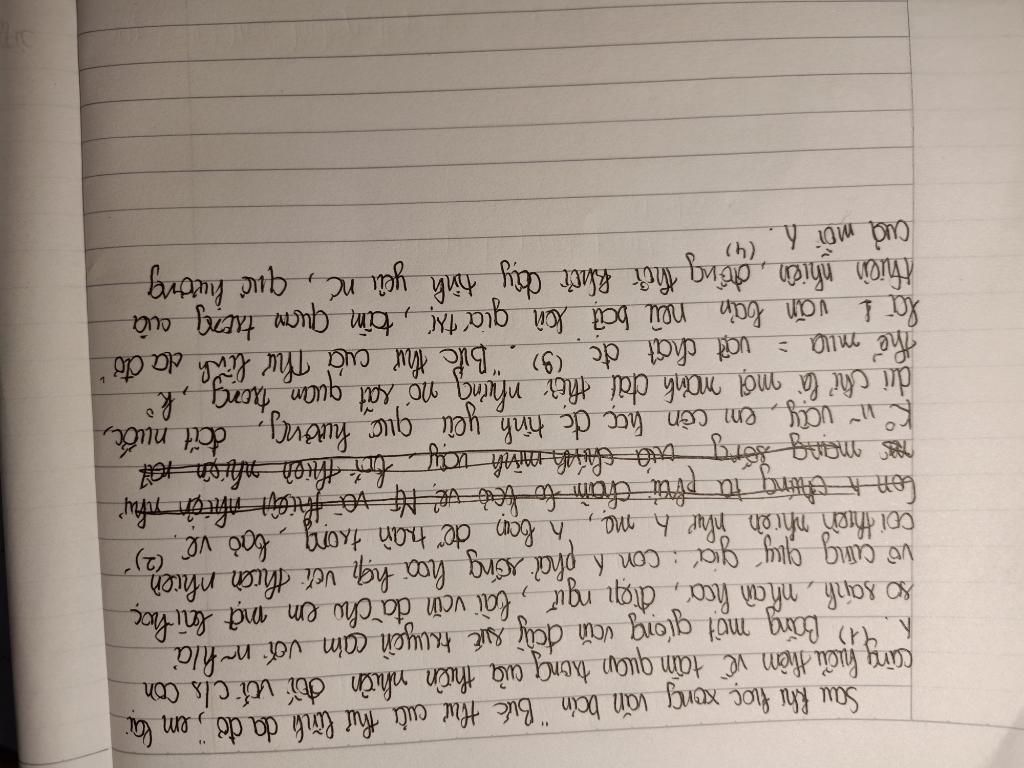 Sau khi học xong văn bản "Bức thư của thủ lĩnh da đỏ", em lại
càng hiểu thêm về tầm quan trọng của thiên nhiên đối với c/s con
λ. (1) Bằng một giọng văn đầy sức truyền cảm với n~ h/a
so sánh, nhân hóa, điệp ngữ, bài văn đã cho em một bài học
vô cùng quý giá: con λ phải sống hòa hợp với thiên nhiên (2),
coi thiên nhiên như λ mẹ, λ bạn để trân trọng, bảo vệ.
con λ chúng ta phải chăm lo bảo vệ và thiên nhiên như
mạng sống của chính mình vậy, bởi thiên nhiên
k° vậy, em còn học đc tình yêu quê hương, đất nước,
dù chỉ là một mảnh đất thôi nhưng nó rất quan trọng, k°
thể mua = vật chất đc (3). "Bức thư của thủ lĩnh da đỏ"
là 1 văn bản nêu bật lên giá trị, tầm quan trọng của
thiên nhiên, đồng thời khơi dậy tình yêu nc, quê hương
của mỗi λ. (4)